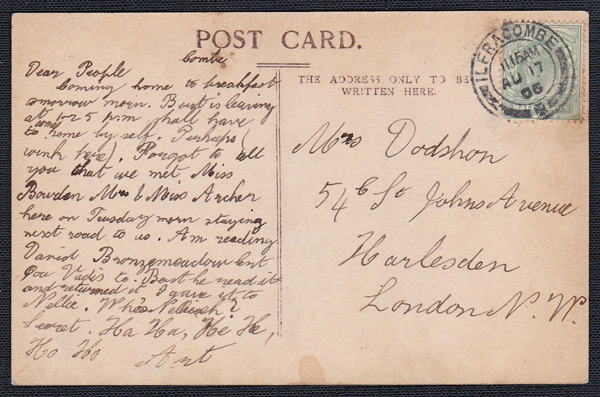 POST CARD.
THE ADDRESS ONLY TO BE
WRITTEN HERE.
ILFRACOMBE
11.15AM
AU 17
06
Combe
Dear People
Coming home to breakfast
tomorrow morn. Bast is leaving
at 1-25 p.m shall have
to come home by self. Perhaps (
wink here). Forgot to tell
you that we met Miss
Bowden Mrs & Miss Archer
here on Tuesday morn staying
next road to us. Am reading
David Bronzemeadow lent
Quo Vadis to Bast he read it
and returned it I gave it to
Nellie. Who's Nellie eh?
Secret. Ha Ha, He He,
Ho Ho Art
Mrs Dodshon
54 St Johns Avenue
Harlesden
London N.W.